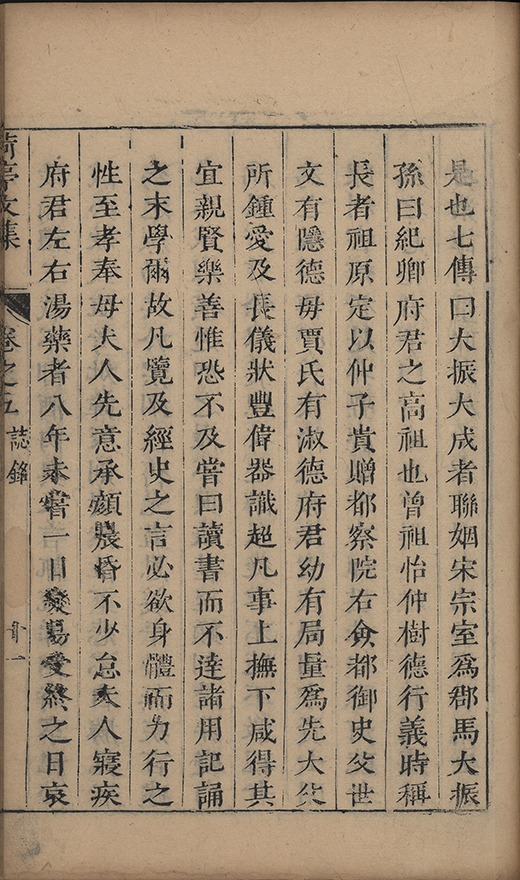 是也七傳曰大振大成者聯姻宋宗室爲郡馬大振
孫曰紀卿府君之高祖也曾祖怡仲樹德行義時稱
長者祖原定以仲子貴贈都察院右僉都御史父世
文有隱德毋賈氏有淑德府君幼有局量爲先大父
所鍾愛及長儀狀豐偉器識超凡事上撫下咸得其
宜親賢樂善惟恐不及嘗曰讀書而不達諸用記誦
之末學爾故凡覽及經史之言必欲身體而力行之
性至孝奉毋夫人先意承顏晨昏不少怠夫人寢疾
府君左右湯藥者八年未嘗一日變易受終之日哀
荷亭文集 卷之五 誌銘 廿一